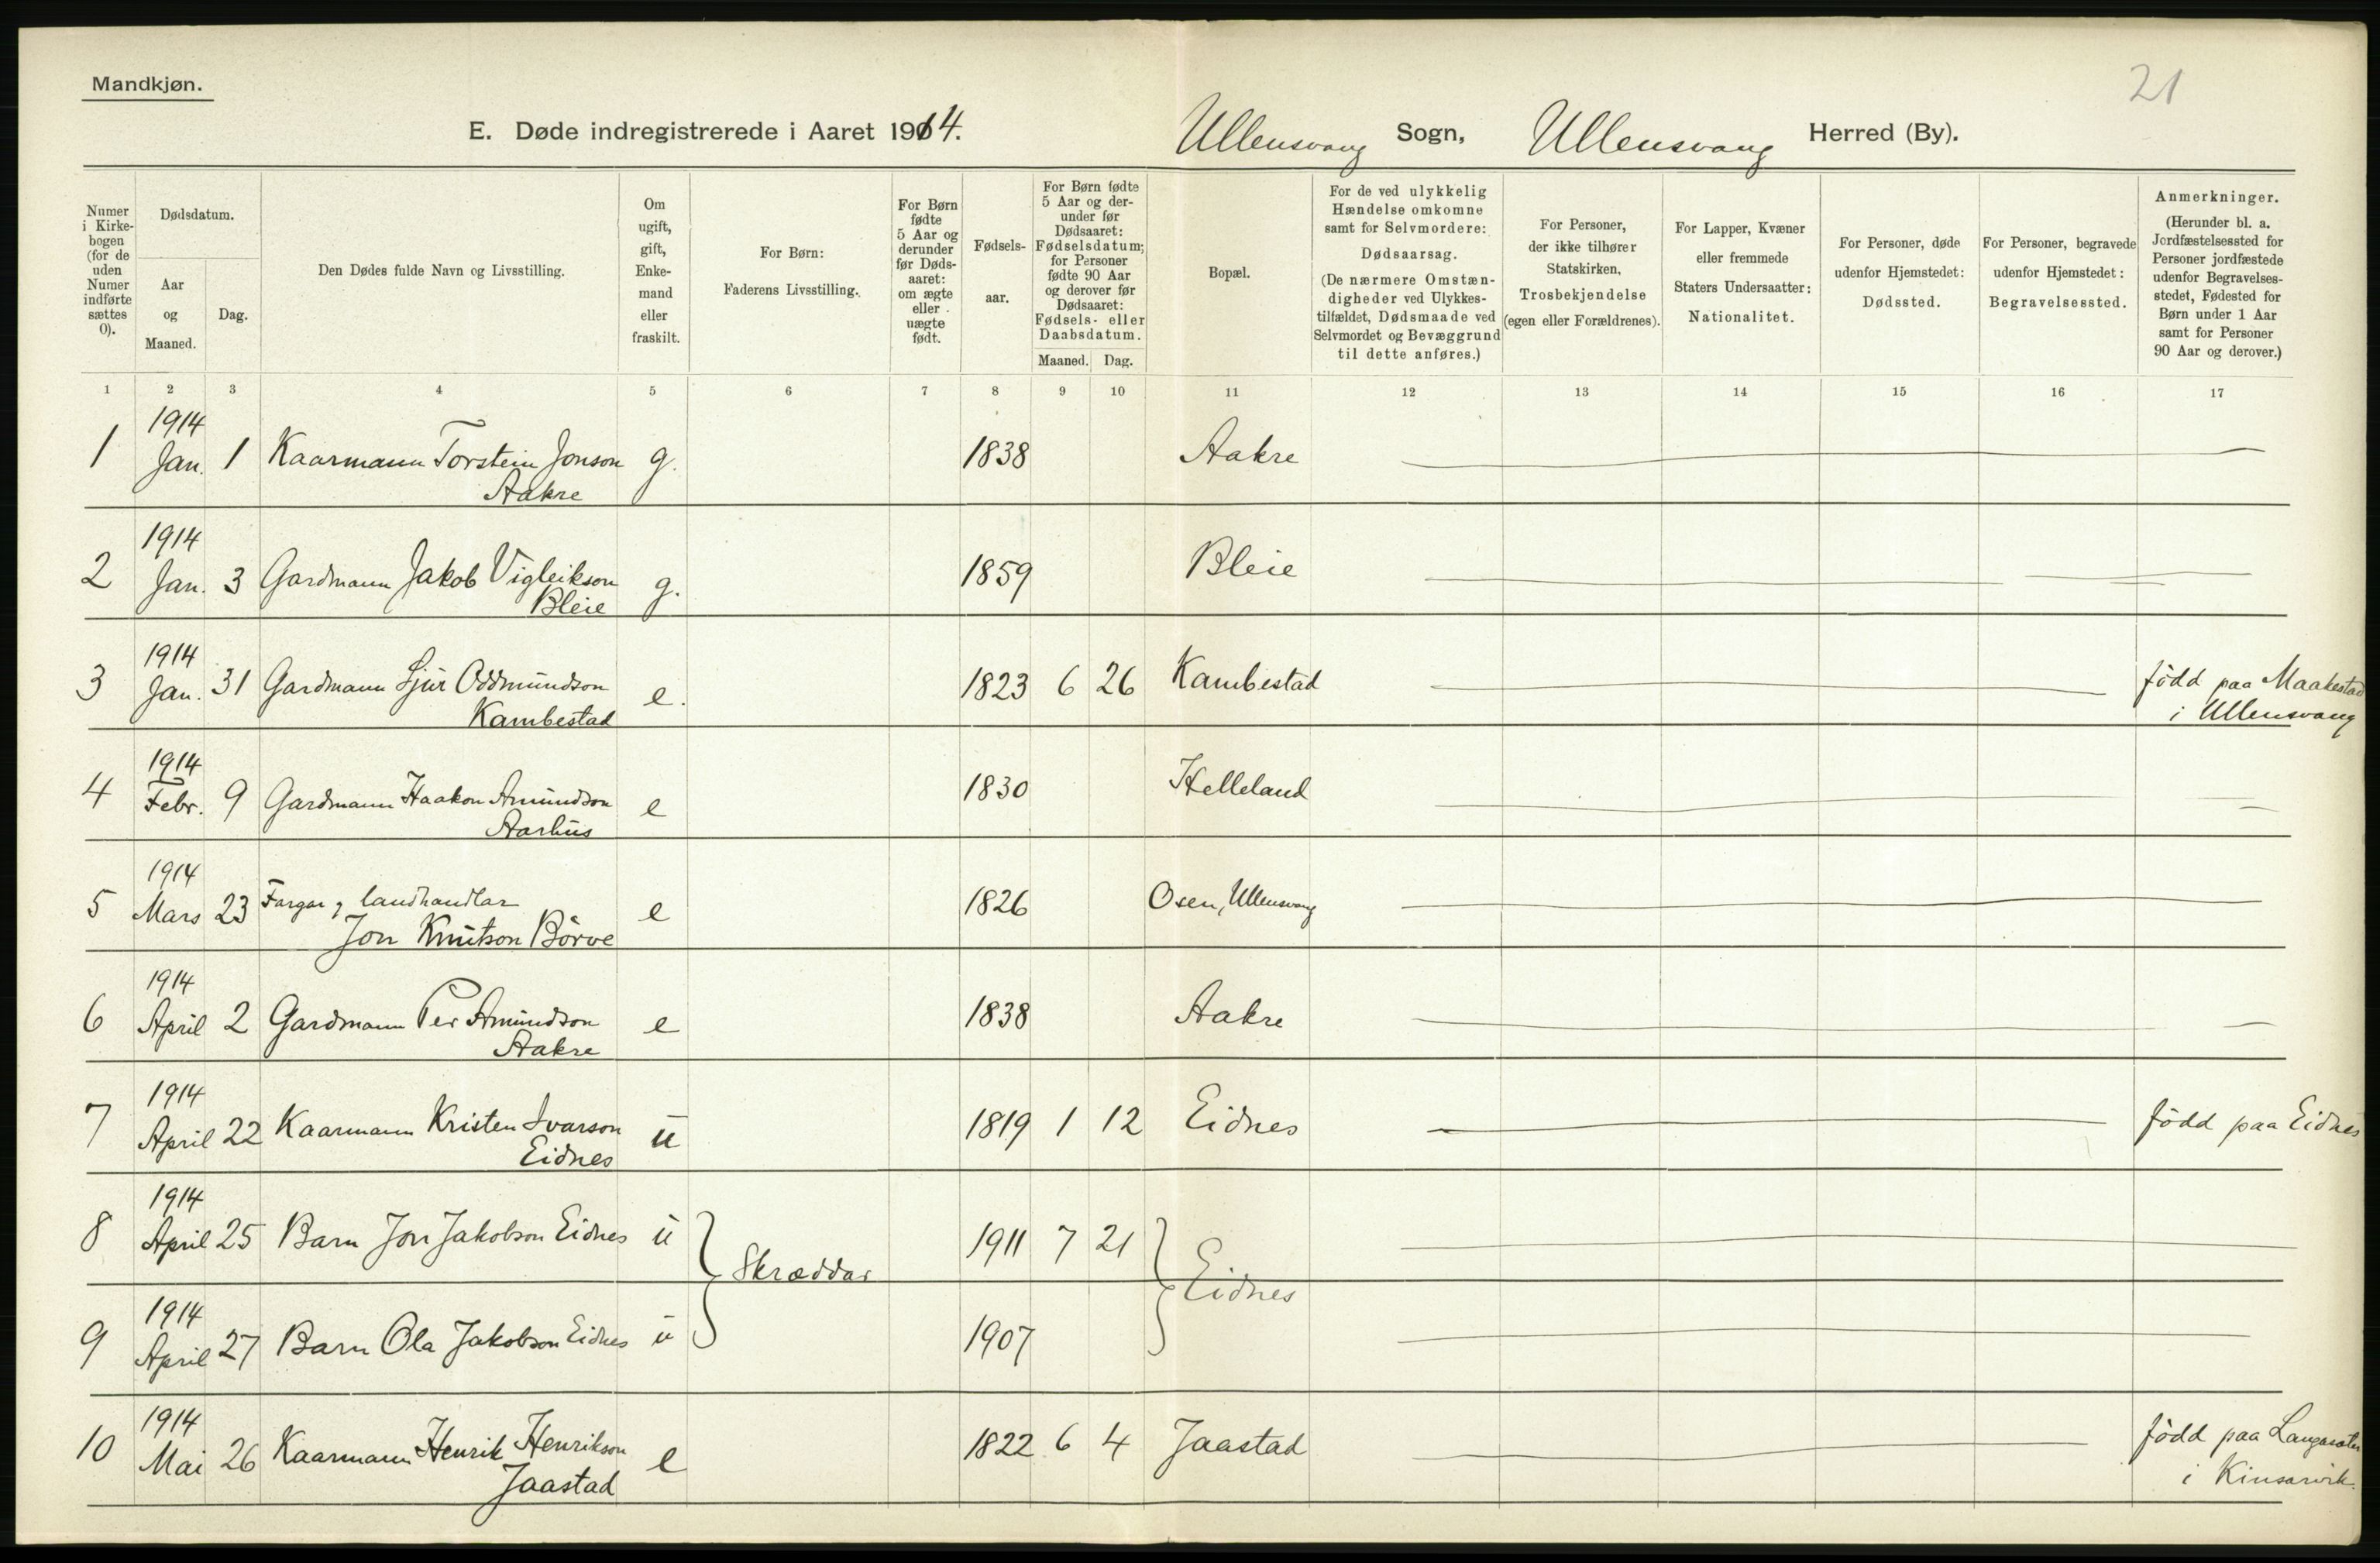 21
Mandkjøn.
E. Døde indregistrerede i Aaret 1914. Ullensvang Sogn, Ullensvang Herred (By).
Numer i Kirke-bogen (for de uden Numer indførte sættes 0).
Dødsdatum.
Aar og Maaned.
Dag.
Den Dødes fulde Navn og Livsstilling.
Om ugift, gift, Enke-mand eller fraskilt.
For Børn: Faderens Livsstilling.
For Børn fødte 5 Aar og derunder før Døds-aaret: om ægte eller uægte født.
Fødsels-aar.
For Børn fødte 5 Aar og der-under før Dødsaaret: Fødselsdatum; for Personer fødte 90 Aar og derover før Dødsaaret: Fødsels- eller Daabsdatum.
Maaned. Dag.
Bopæl.
For de ved ulykkelig Hændelse omkomne samt for Selvmordere: Dødsaarsag. (De nærmere Omstæn-digheder ved Ulykkes-tilfældet, Dødsmaade ved Selvmordet og Bevæggrund til dette anføres.)
For Personer, der ikke tilhører Statskirken, Trosbekjendelse (egen eller Forældrenes).
For Lapper, Kvæner eller fremmede Staters Undersaatter: Nationalitet.
For Personer, døde udenfor Hjemstedet: Dødssted.
For Personer, begravede udenfor Hjemstedet: Begravelsessted.
Anmerkninger. (Herunder bl. a. Jordfæstelsessted for Personer jordfæstede udenfor Begravelses-stedet, Fødested for Børn under 1 Aar samt for Personer 90 Aar og derover.)
1 2 3 4 5 6 7 8 9 10 11 12 13 14 15 16 17
1914
1 Jan. 1 Kaarmann Torstein Jonson g. 1838 Aakre
Aakre
1914
2 Jan. 3 Gardmann Jakob Vigleikson g. 1859 Bleie
Bleie
1914
3 Jan. 31 Gardmann Sjur Oddmundson e. 1823 6 26 Kambestad född paa Maakestad
Kambestad i Ullensvang
1914
4 Febr. 9 Gardmann Haakon Amundson e 1830 Helleland
Aarhus
1914
5 Mars 23 Fargar og landhandlar e 1826 Osen, Ullensvang
Jon Knutson Börve
1914
6 April 2 Gardmann Per Amundson e 1838 Aakre
Aakre
1914
7 April 22 Kaarmann Kristen Ivarson u 1819 1 12 Eidnes född paa Eidnes
Eidnes
1914
8 April 25 Barn Jon Jakobson Eidnes u 1911 7 21
Skræddar Eidnes
1914
9 April 27 Barn Ola Jakobson Eidnes u 1907
1914
10 Mai 26 Kaarmann Henrik Henrikson e 1822 6 4 Jaastad född paa Langesæter
Jaastad i Kinsarvik.